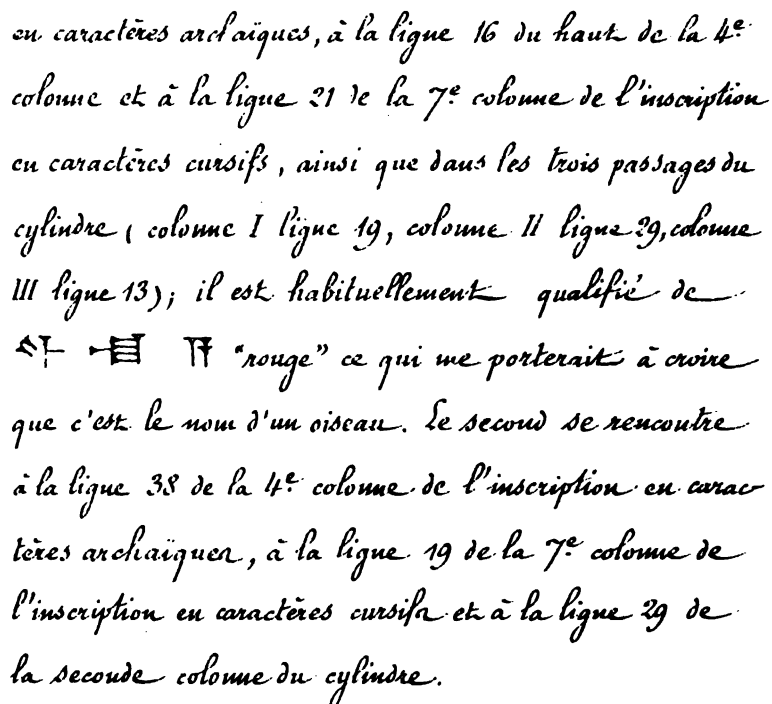 en caractères archaïques, à la ligne 16 du haut de la 4e
colonne et à la ligne 21 de la 7e colonne de l'inscription
en caractères cursifs, ainsi que dans les trois passages du
cylindre (colonne I ligne 19, colonne II ligne 29, colonne
III ligne 13); il est habituellement qualifié de
"rouge" ce qui me porterait à croire
que c'est le nom d'un oiseau. Le second se rencontre
à la ligne 38 de la 4e colonne de l'inscription en carac-
tères archaïques, à la ligne 19 de la 7e colonne de
l'inscription en caractères cursifs et à la ligne 29 de
la seconde colonne du cylindre.